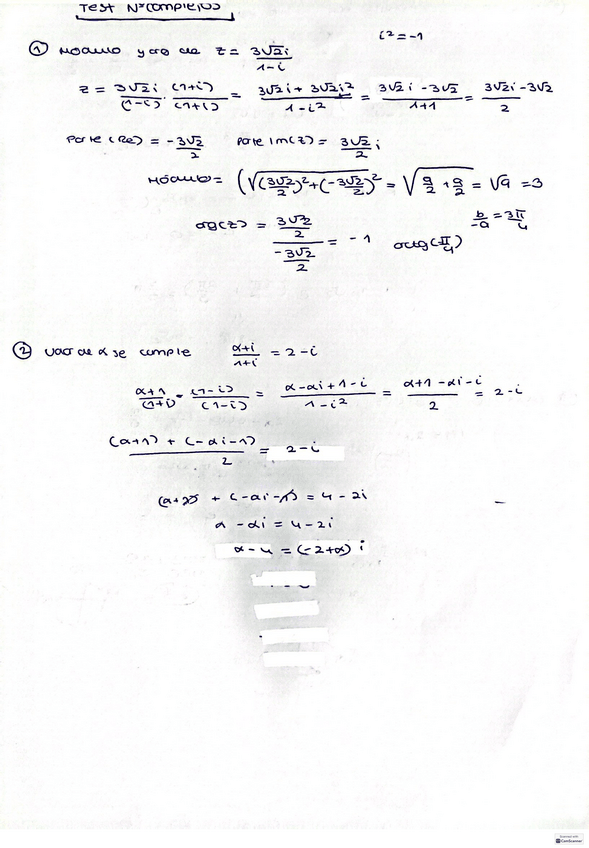 Test Nºcomplejos
i² = -1
① Módulo y arg de z = 3√2i / 1-i
z = 3√2i / (1-i) · (1+i) / (1+i) = 3√2i + 3√2i² / 1-i² = 3√2i - 3√2 / 1+1 = 3√2i - 3√2 / 2
Parte (Re) = -3√2 / 2 Parte Im(z) = 3√2 / 2 i
Módulo = (√(3√2 / 2)² + (-3√2 / 2)² = √9/2 + 9/2 = √9 = 3
arg(z) = 3√2 / 2 / -3√2 / 2 = -1 arctg(π/4) b/-a = 3π/4
② Valor de α se cumple α+i / 1+i = 2-i
α+1 / (1+i) · (1-i) / (1-i) = α-αi+1-i / 1-i² = α+1-αi-i / 2 = 2-i
(α+1) + (-αi-1) / 2 = 2-i
+ (-αi-1) = 4-2i
α -αi = 4-2i
α-4 = (-2+α) i
Scanned with
CamScanner